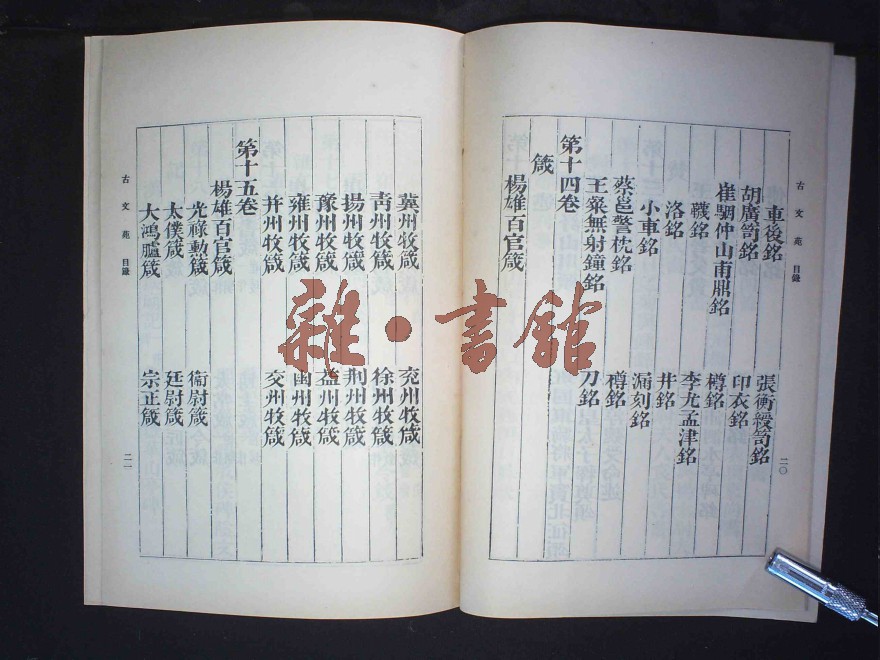 古文苑 目錄
二〇
車後銘 張衡綬笥銘
胡廣笥銘 印衣銘
崔駰仲山甫鼎銘 樽銘
韈銘 李尤孟津銘
洛銘 井銘
小車銘 漏刻銘
蔡邕警枕銘 樽銘
王粲無射鐘銘 刀銘
第十四卷
箴
楊雄百官箴
冀州牧箴 兗州牧箴
靑州牧箴 徐州牧箴
揚州牧箴 荆州牧箴
豫州牧箴 益州牧箴
雍州牧箴 幽州牧箴
并州牧箴 交州牧箴
第十五卷
楊雄百官箴
光祿勳箴 衞尉箴
太僕箴 廷尉箴
大鴻臚箴 宗正箴
古文苑 目錄
二一
雜·書館